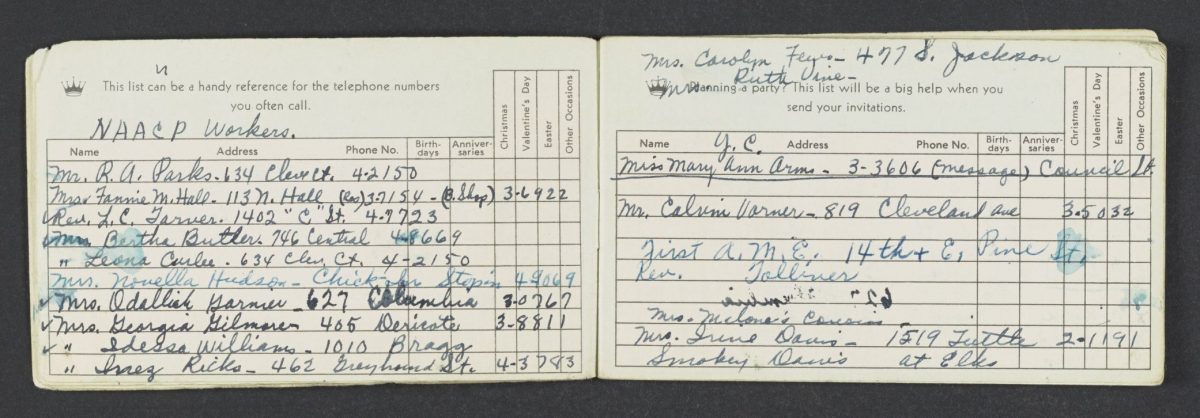 "
This list can be a handy reference for the telephone numbers
you often call.
NAACP Workers.
Name Address Phone No. Birth-days Anniver-saries Christmas Valentine's Day Easter Other Occasions
Mr. R. A. Parks. 634 Cleve Ct. 4-2150
Mrs. Fannie M. Hall. 113 N. Hall (Res) 3-7154 - (B. Shop) 3-6922
✓ Rev. L. C. Tarver. 1402 "C" St. 4-7723
✓ Mrs. Bertha Butler. 746 Central 4-8669
" Leona Curlee. 634 Clev. Ct. 4-2150
Mrs. Novella Hudson - Chick-Inn Stop in 4-9069
✓ Mrs. Odallick Garnier - 627 Columbia 3-0767
✓ Mrs. Georgia Gilmore - 405 Dericote 3-8811
✓ " Idessa Williams - 1010 Bragg
" Inez Ricks - 462 Greyhound St. 4-3783
Mrs. Carolyn - 477 S. Jackson
Mrs. Ruth Vine -
Planning a party? This list will be a big help when you
send your invitations.
Y.C.
Name Address Phone No. Birth-days Anniver-saries Christmas Valentine's Day Easter Other Occasions
Miss Mary Ann Arms - 3-3606 (message) Council St.
Mr. Calvin Varner - 819 Cleveland Ave 3-5032
First A.M.E. 14th & E. Pine St.
Rev. Tolliver
Mrs. Malone's Cousin
Mrs. Irene Davis - 1519 Tuttle 2-1191
Smokey Davis at Elks